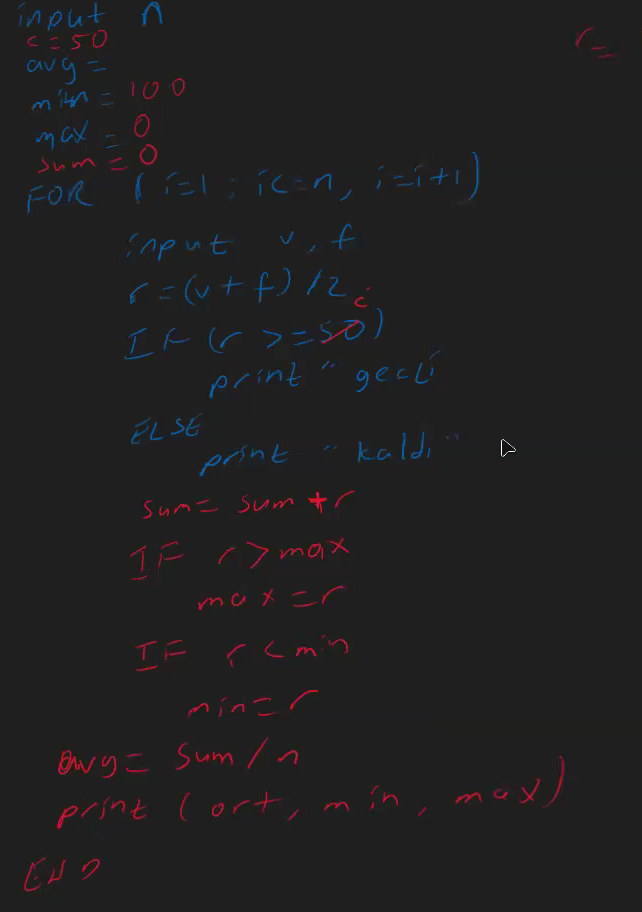 input n
c=50
r=
avg=
min=100
max=0
sum=0
FOR (i=1; i<=n, i=i+1)
input v, f
r=(v+f)/2
c
IF (r >=50)
print "gecti
ELSE
print "kaldı"
sum= sum +r
IF r>max
max=r
IF r<min
min=r
avg= sum/n
print (ort, min, max)
END